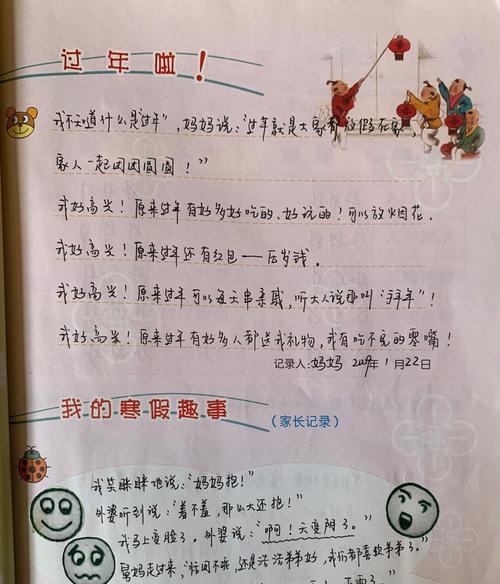 过年啦！
我不知道什么是“过年”，妈妈说：“过年就是大家都放假在家，
家人一起团团圆圆！”
我好高兴！原来过年有好多好吃的、好玩的！可以放烟花.
我好高兴！原来过年还有红包——压岁钱.
我好高兴！原来过年可以每天串亲戚，听大人说那叫“拜年”！
我好高兴！原来过年有好多人都送我礼物，我有吃不完的零嘴！
记录人：妈妈 2009年1月22日
我的寒假趣事
（家长记录）
我笑眯眯地说：“妈妈抱！”
外婆听到说：“羞不羞，那么大还抱！”
我马上变脸了。外婆说：“啊！天变阴了。”
舅妈走过来，“姑因不乖，还是浩浩弟弟好，我们都喜欢弟弟了。”